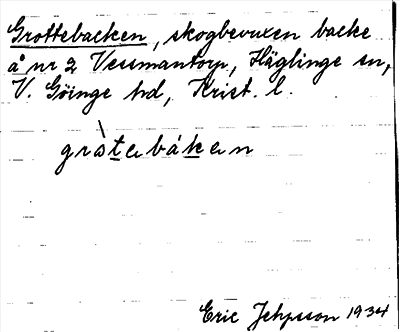 Grottebacken, skogbevuxen backe
å nr 2 Vessmantorp, Häglinge sn,
V. Göinge hd, Krist. l.
gràtebáken
Eric Jeppsson 1934